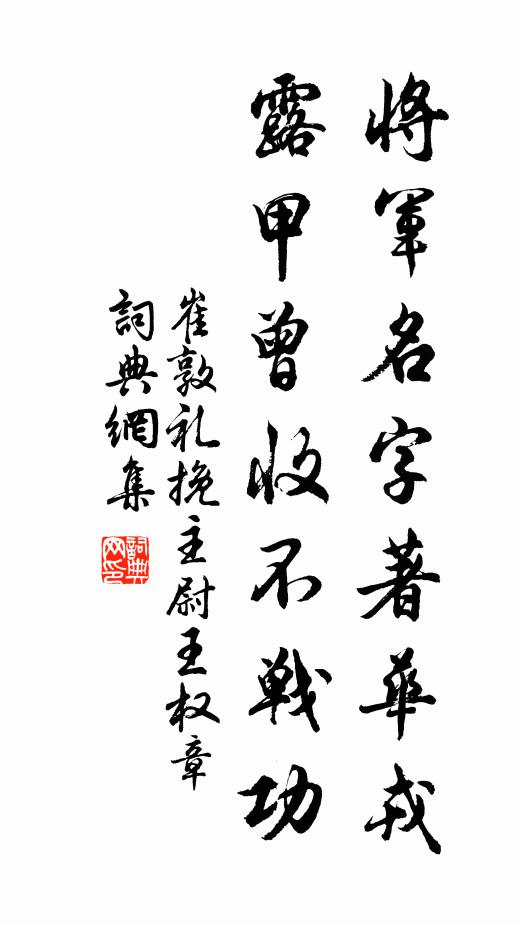 將軍名字著華戎
露甲曾收不戰功
崔敦礼挽主尉王权章
詞典網集
詞典網印